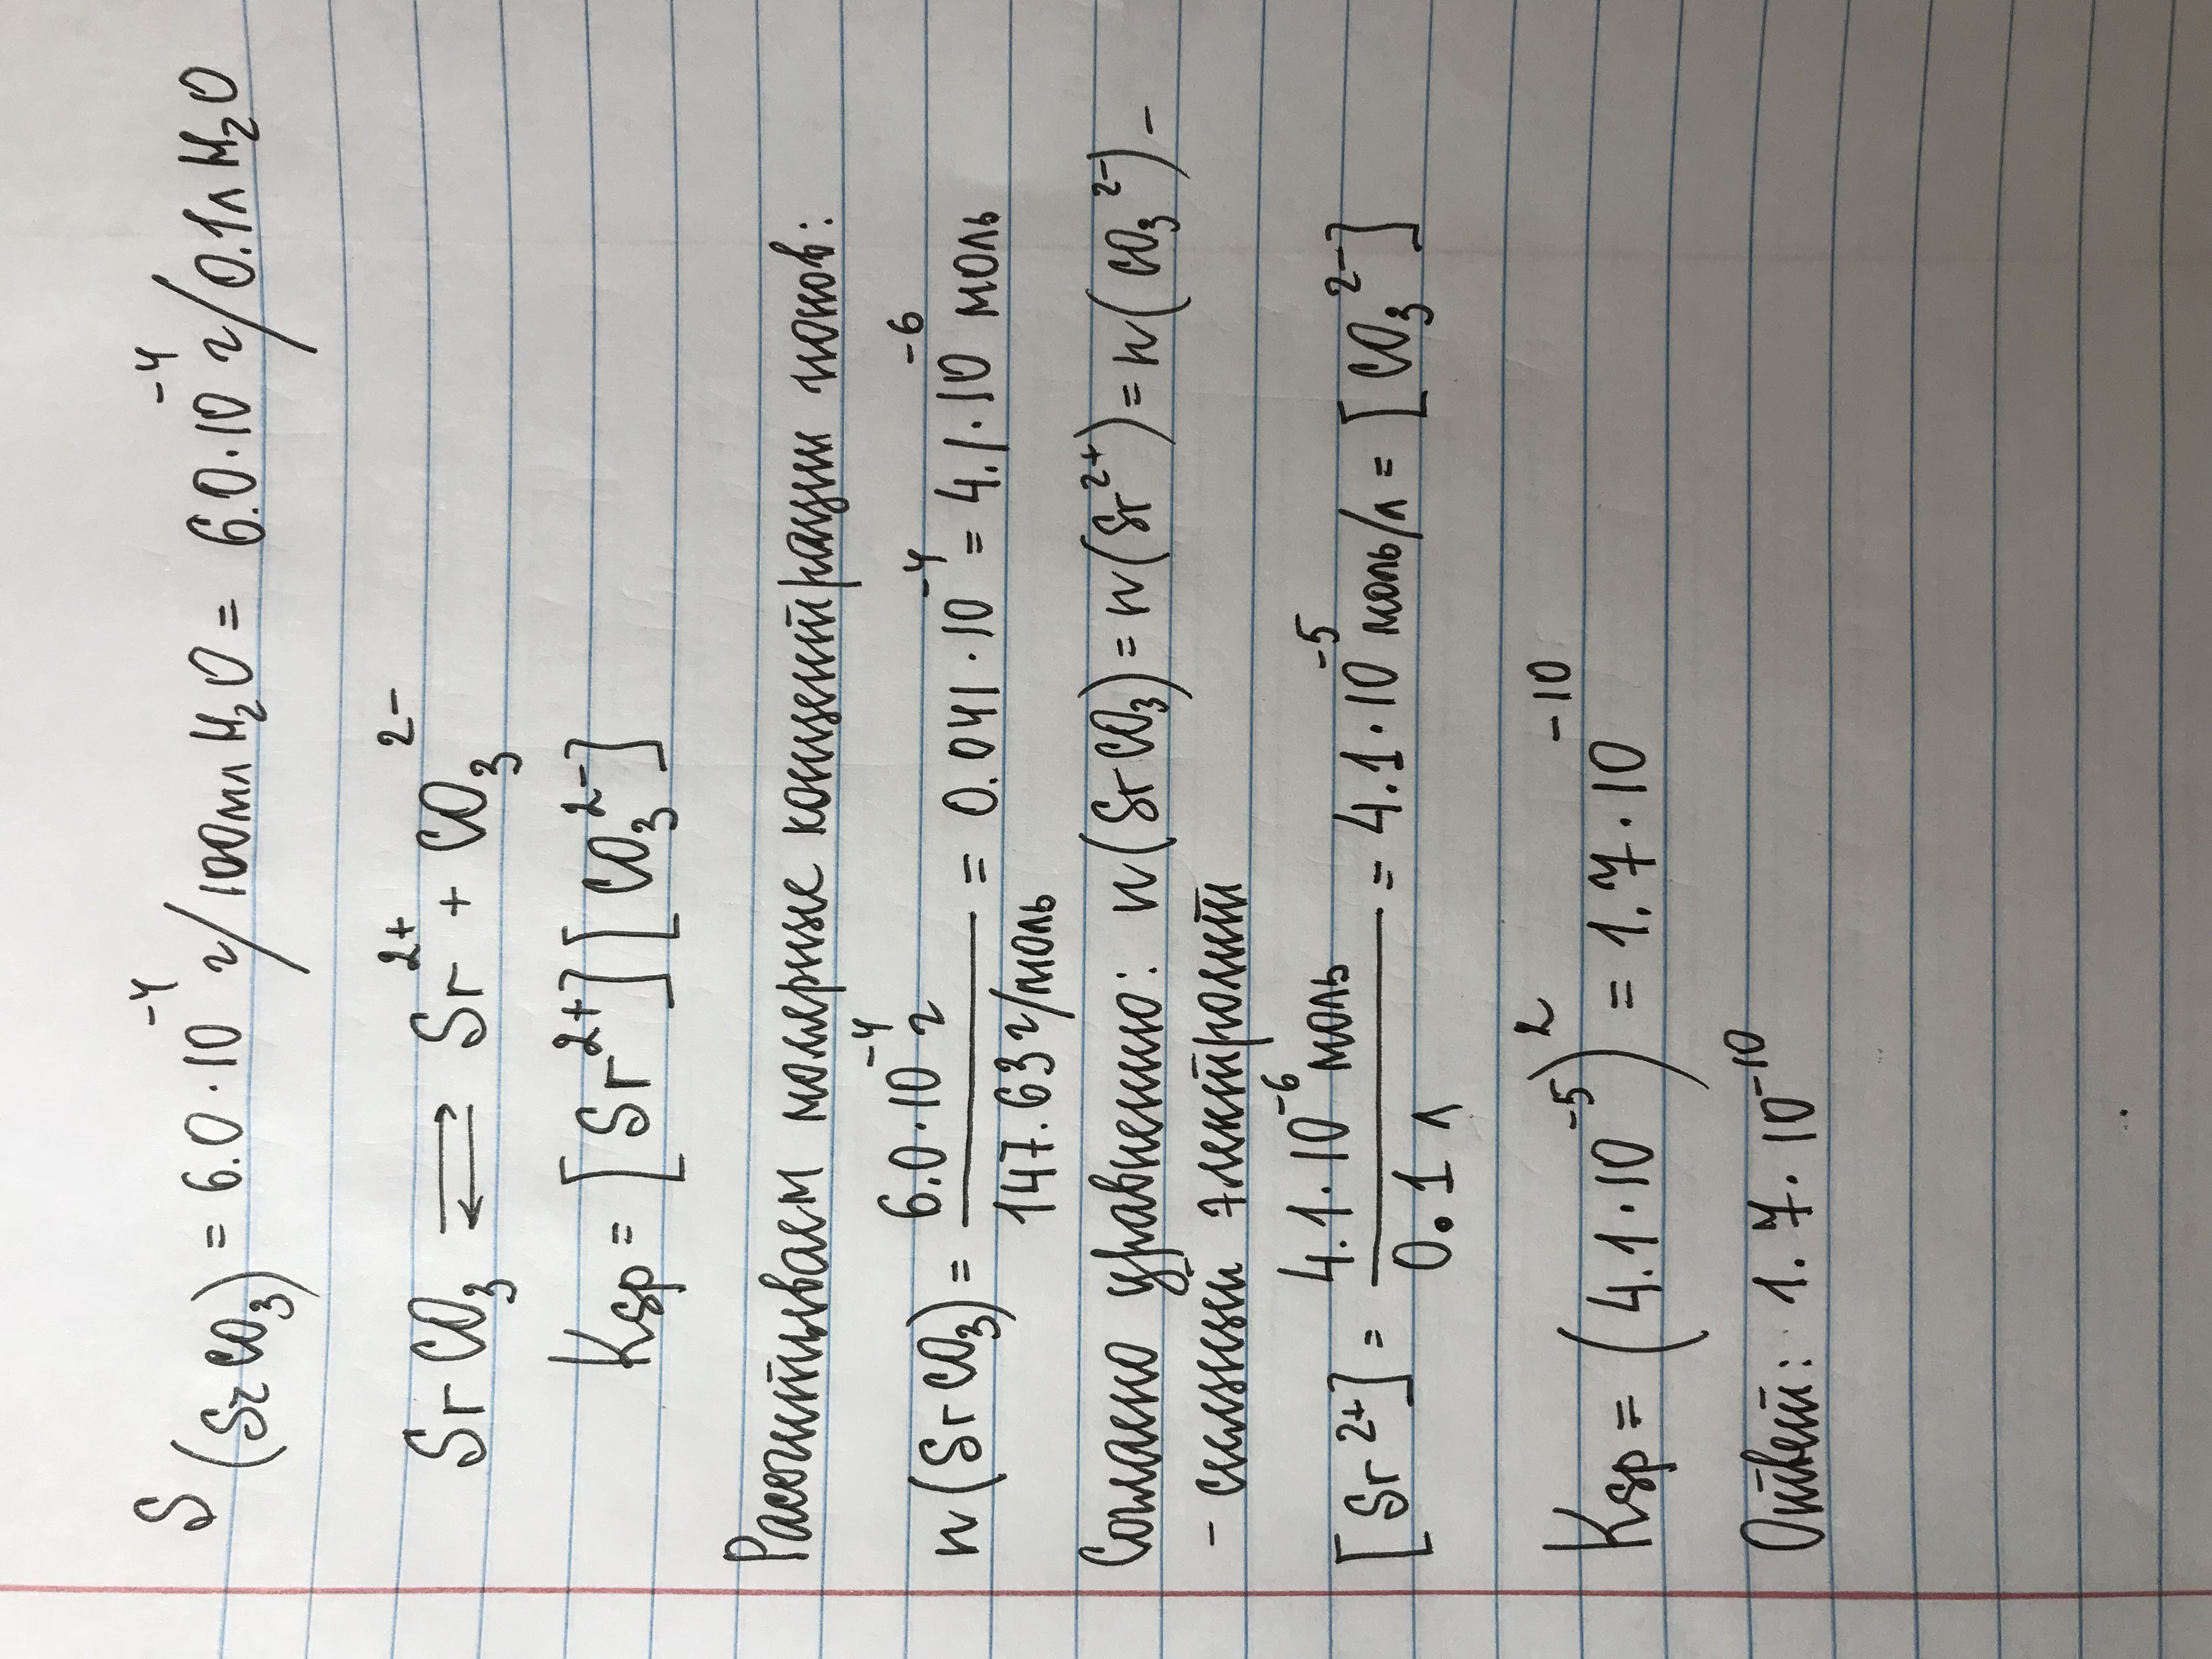 S (SrCO₃) = 6.0·10⁻⁴ г/100мл H₂O = 6.0·10⁻⁴ г/0.1л H₂O
SrCO₃ ⇄ Sr²⁺ + CO₃²⁻
Ksp = [Sr²⁺][CO₃²⁻]
Рассчитываем молярные концентрации ионов:
n(SrCO₃) = 6.0·10⁻⁴ г / 147.63 г/моль = 0.041·10⁻⁴ = 4.1·10⁻⁶ моль
Согласно уравнению: n(SrCO₃) = n(Sr²⁺) = n(CO₃²⁻) –
– сильный электролит
[Sr²⁺] = 4.1·10⁻⁶ моль / 0.1 л = 4.1·10⁻⁵ моль/л = [CO₃²⁻]
Ksp = (4.1·10⁻⁵)² = 1.7·10⁻¹⁰
Ответ: 1.7·10⁻¹⁰